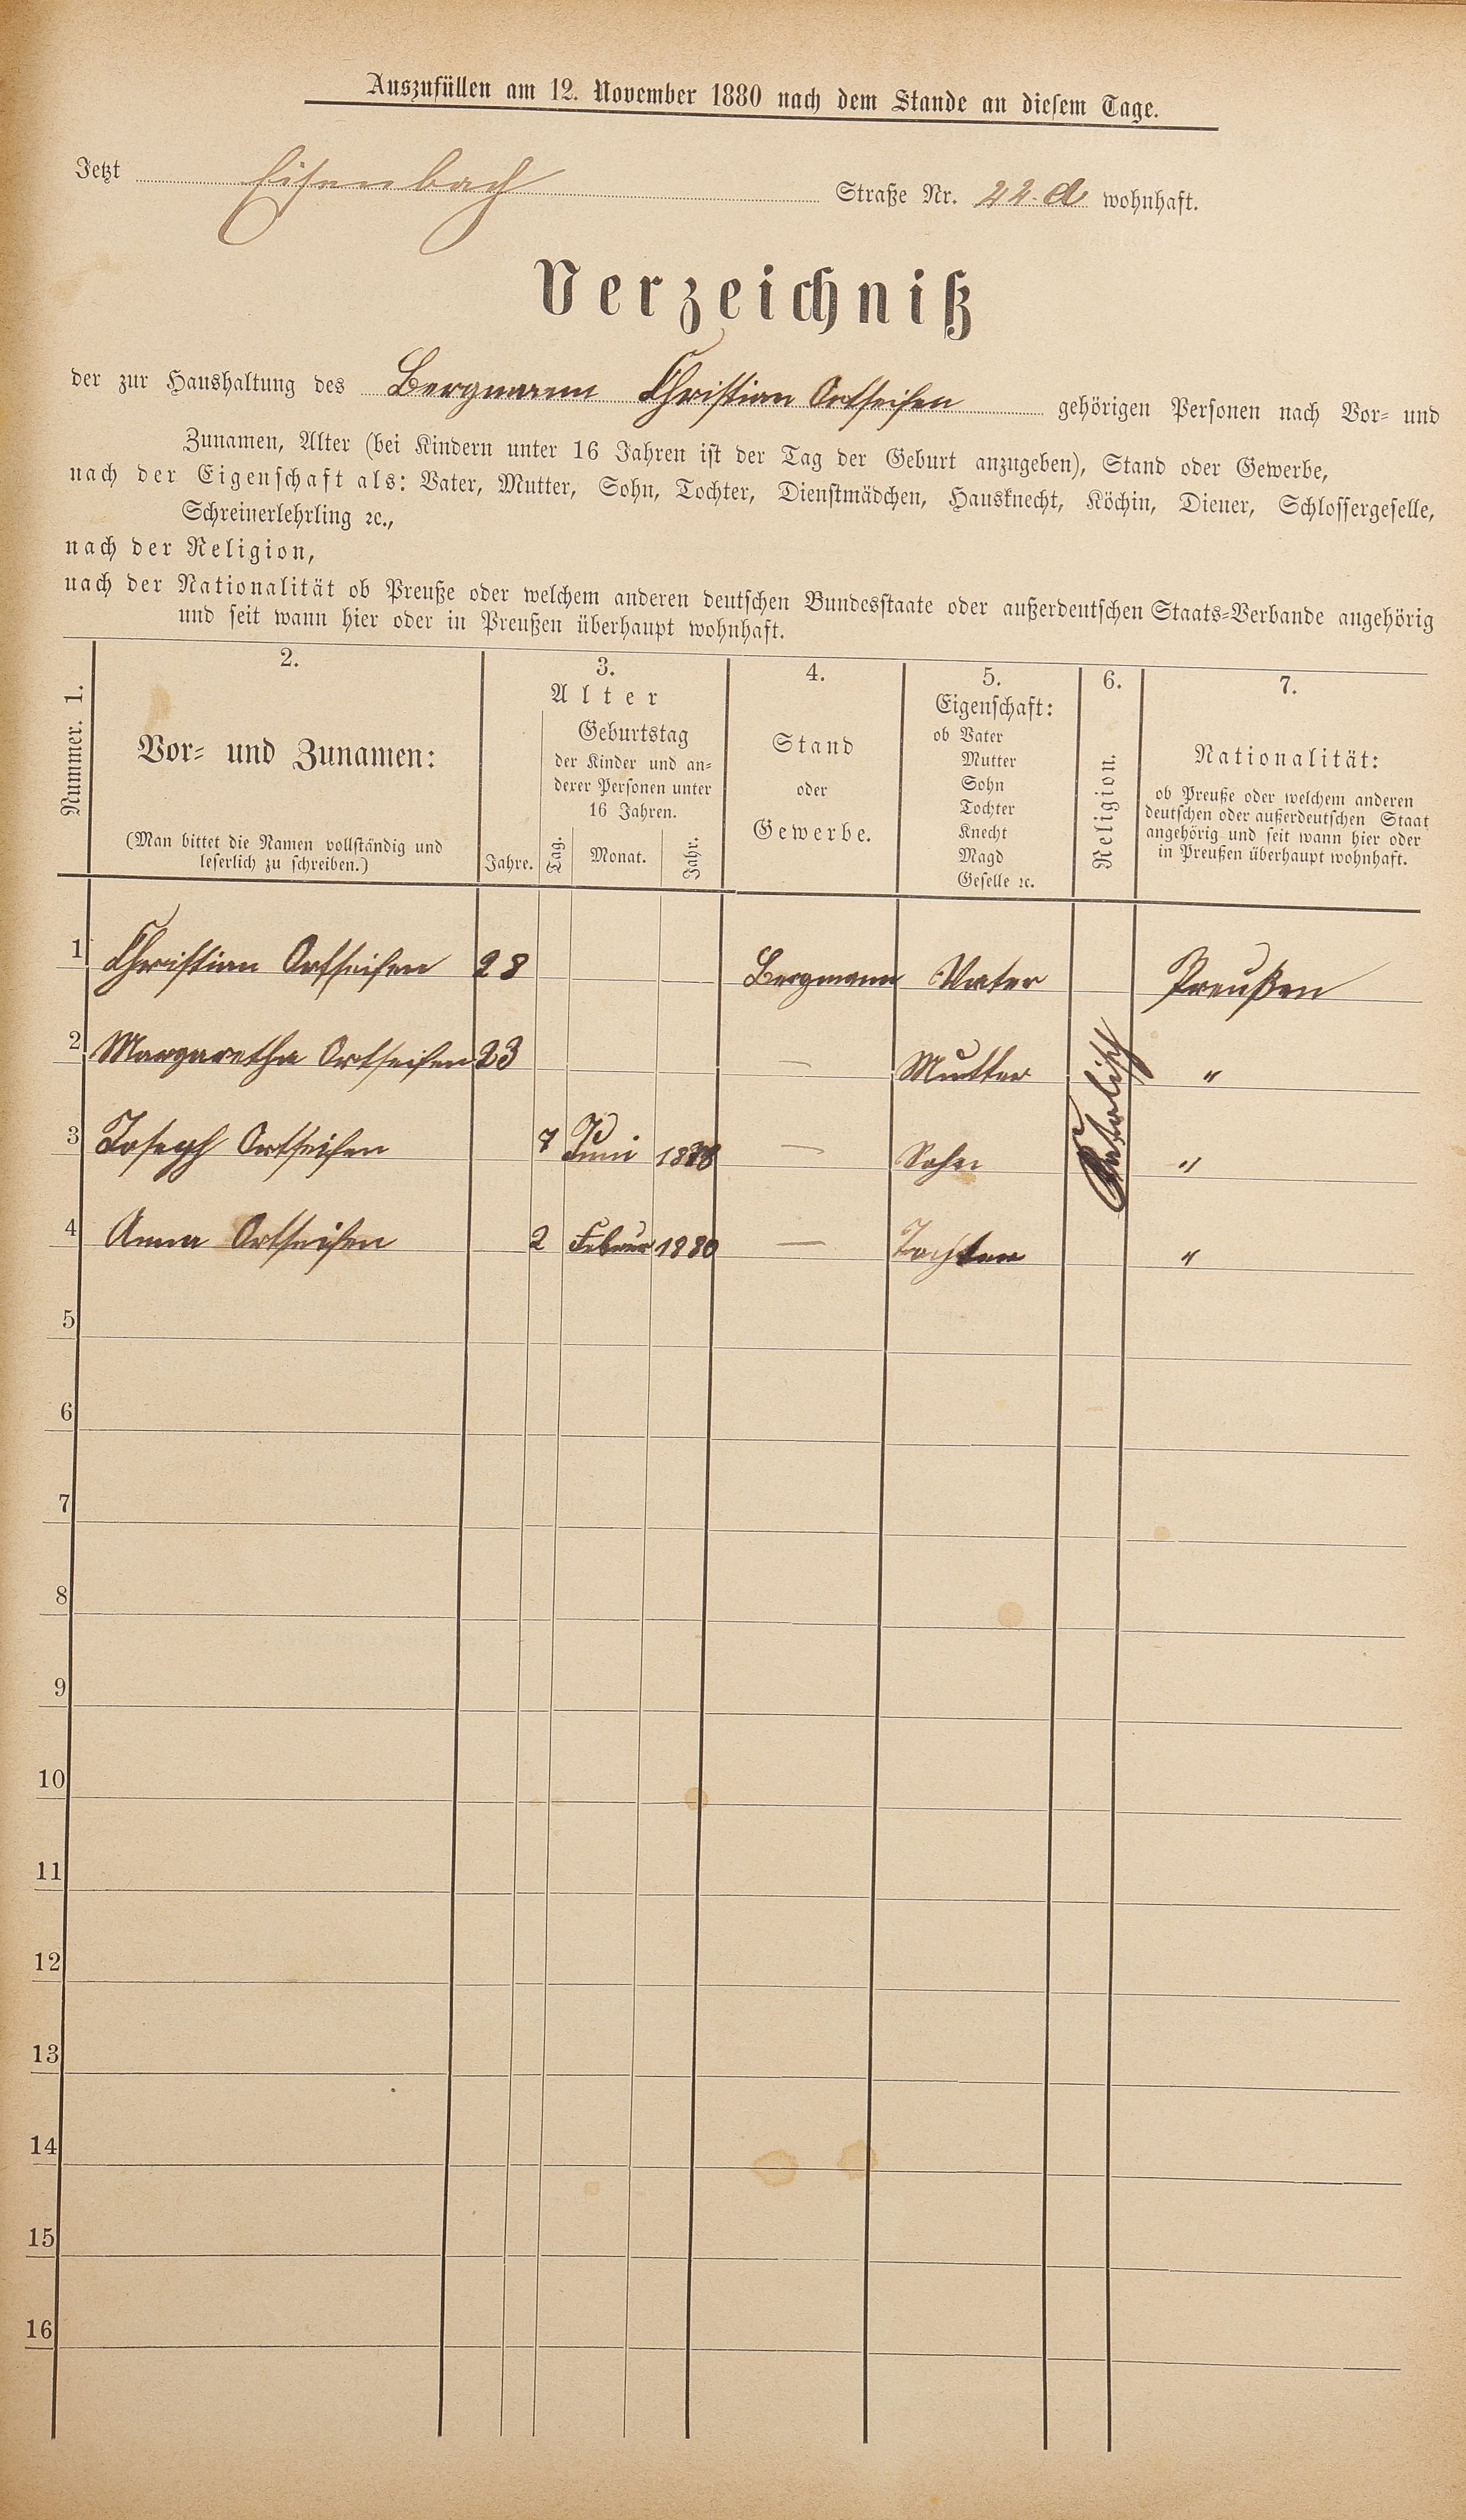 Auszufüllen am 12. November 1880 nach dem Stande an diesem Tage.
Jetzt Eisenbach Straße Nr. 22. d wohnhaft.
Verzeichniß
der zur Haushaltung des Bergmann Christian Ortseifen gehörigen Personen nach Vor- und
Zunamen, Alter (bei Kindern unter 16 Jahren ist der Tag der Geburt anzugeben), Stand oder Gewerbe,
nach der Eigenschaft als: Vater, Mutter, Sohn, Tochter, Dienstmädchen, Hausknecht, Köchin, Diener, Schlossergeselle,
Schreinerlehrling ꝛc.,
nach der Religion,
nach der Nationalität ob Preuße oder welchem anderen deutschen Bundesstaate oder außerdeutschen Staats-Verbande angehörig
und seit wann hier oder in Preußen überhaupt wohnhaft.
Nummer. 1.
2.
Vor- und Zunamen:
(Man bittet die Namen vollständig und
leserlich zu schreiben.)
3.
Alter
Jahre.
Geburtstag
der Kinder und an-
derer Personen unter
16 Jahren.
Tag. Monat. Jahr.
4.
Stand
oder
Gewerbe.
5.
Eigenschaft:
ob Vater
Mutter
Sohn
Tochter
Knecht
Magd
Geselle ꝛc.
6.
Religion.
7.
Nationalität:
ob Preuße oder welchem anderen
deutschen oder außerdeutschen Staat
angehörig und seit wann hier oder
in Preußen überhaupt wohnhaft.
1 Christian Ortseifen 28 Bergmann Vater Preußen
2 Margaretha Ortseifen 23 — Mutter "
Katolisch
3 Joseph Ortseifen 7 Juni 1878 — Sohn "
4 Anna Ortseifen 2 Februar 1880 — Tochter "
5
6
7
8
9
10
11
12
13
14
15
16